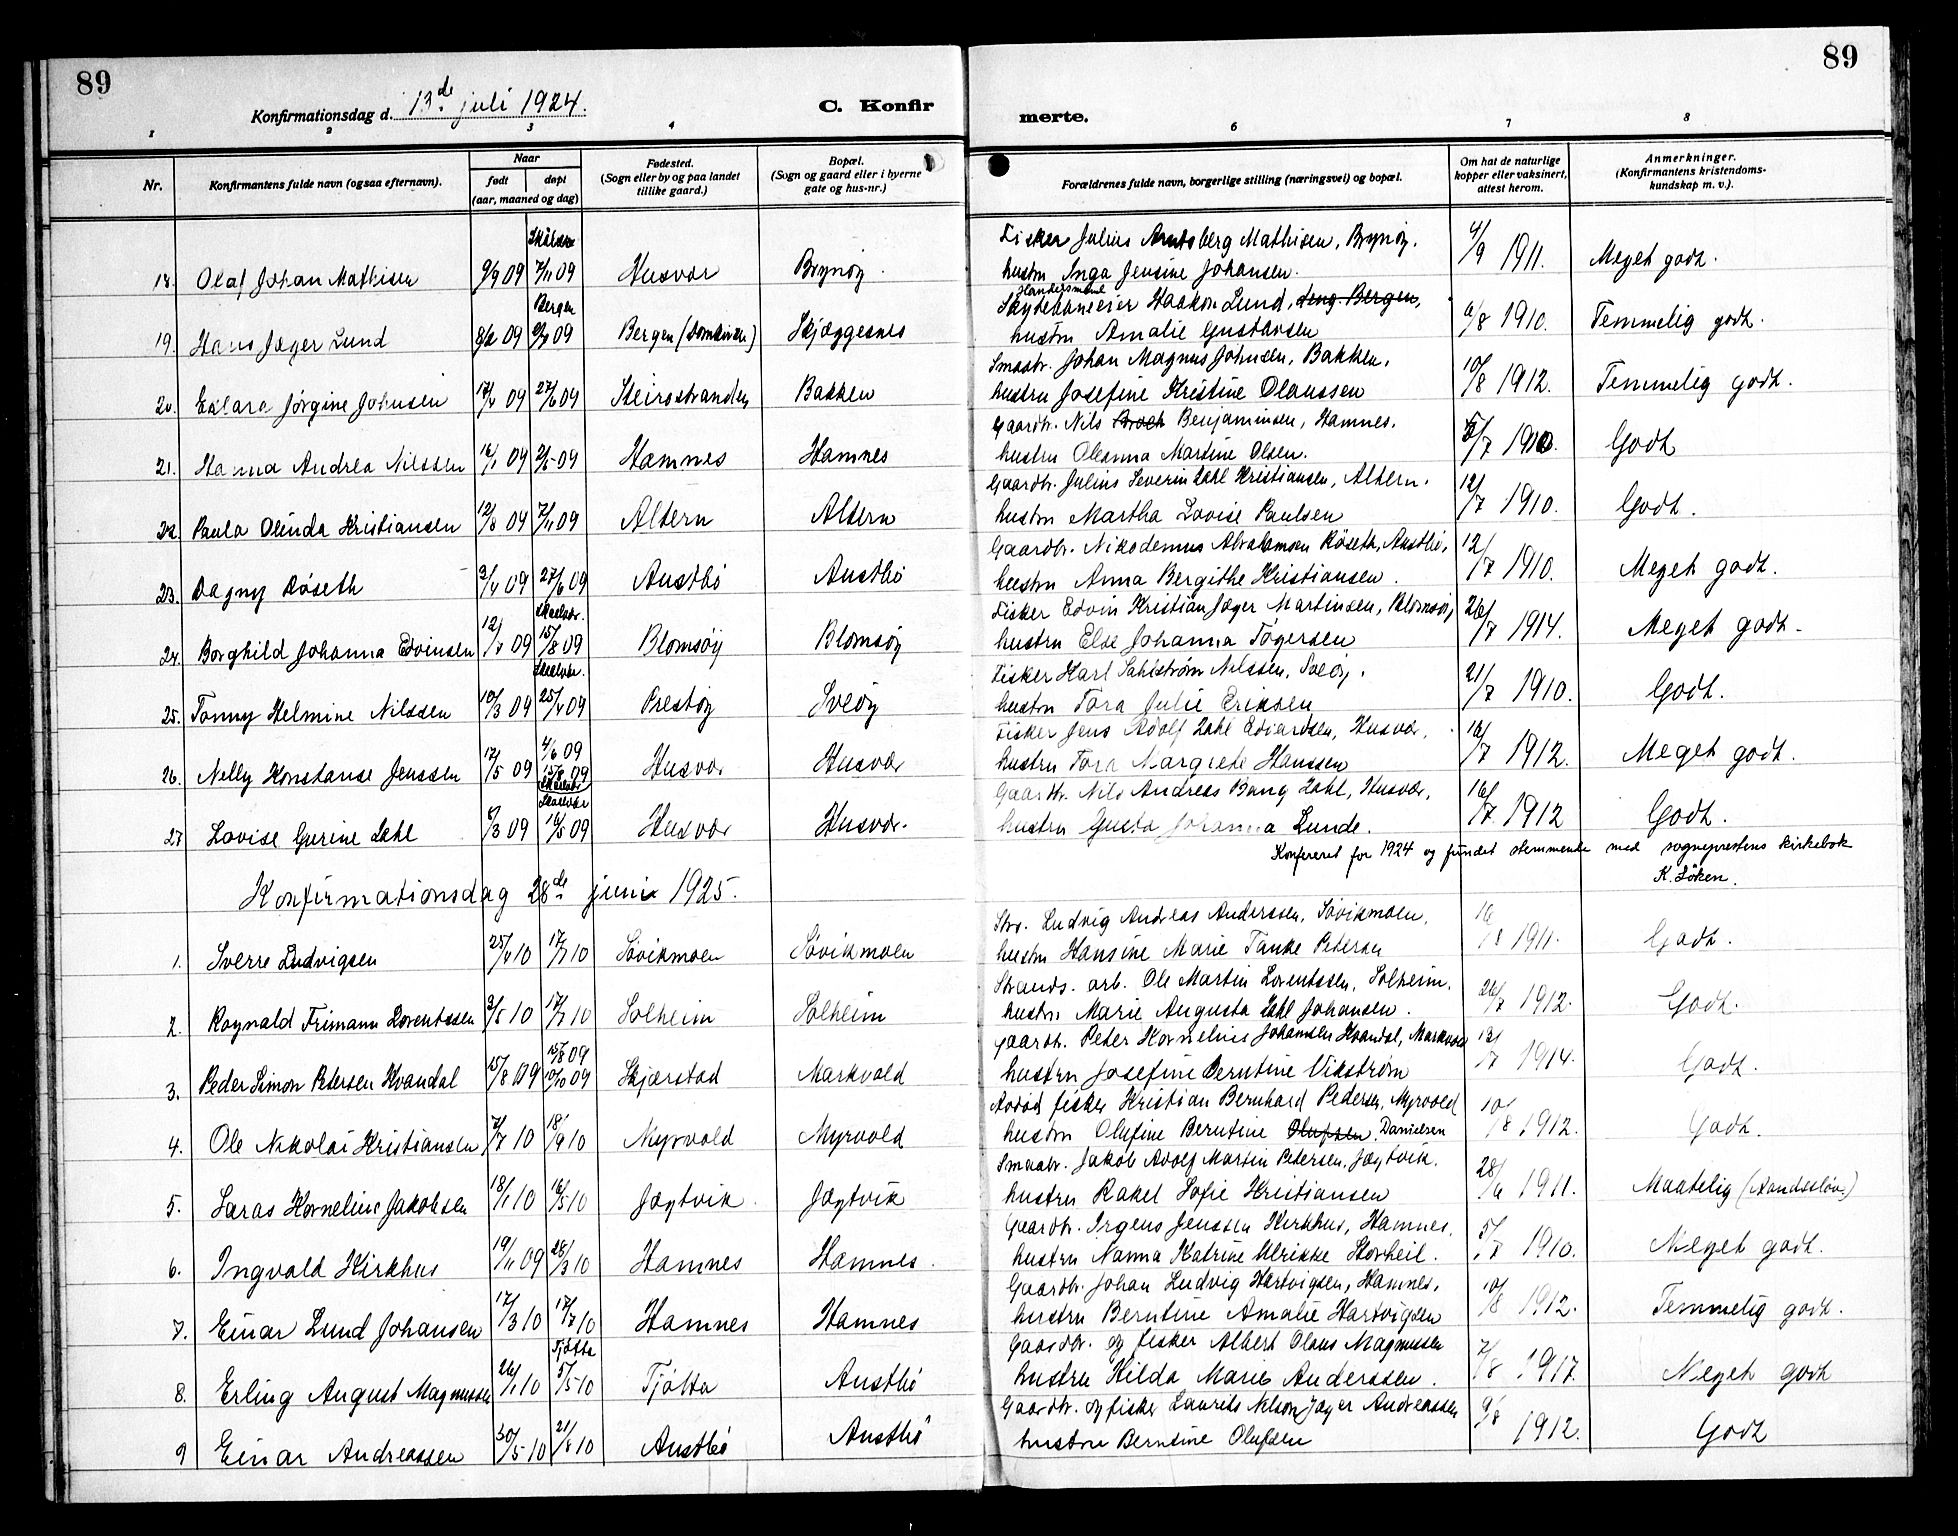 89
89
Konfirmationsdag d. 13de juli 1924.
C. Konfir
merte.
1 2 3 4 6 7 8
Nr.
Konfirmantens fulde navn (ogsaa efternavn).
Naar
født
døpt
(aar, maaned og dag)
Fødested.
(Sogn eller by og paa landet
tillike gaard.)
Bopæl.
(Sogn og gaard eller i byerne
gate og hus-nr.)
Forældrenes fulde navn, borgerlige stilling (næringsvei) og bopæl.
Om hat de naturlige
kopper eller vaksinert,
attest herom.
Anmerkninger.
(Konfirmantens kristendoms-
kundskap m. v.).
Fisker Julius Arntsberg Mathisen, Brynøy.
18. Olaf Johan Mathisen 9/9 09 7/11 09 Husvær Brynøy. hustru Inga Jensine Johansen. 4/9 1911. Meget godt.
Bergen Handelsmand
Skydebaneeier Haakon Lund, Bergen,
19. Hans Jæger Lund 09 09 Bergen (Domkirken) Skjæggesnes hustru Amalie Gustavsen 6/8 1910. Temmelig godt.
Smaabr. Johan Magnus Johnsen, Bakken,
20. Jørgine Johnsen 09 27/6 09 Steirostranden Bakken hustru Josefine Kristine Olaussen 10/8 1912. Temmelig godt.
Gaardbr. Nils Benjaminsen, Hamnes.
21. Hanna Andrea Nilssen 16/1 09 09 Hamnes Hamnes hustru Oleanna Martine Olsen. 5/7 1910. Godt
Gaardbr. Julius Severin Dahl Kristiansen, Altern.
22. Paula Olinda Kristiansen 12/8 09 7/11 09 Altern Altern hustru Martha Lovise Paulsen 12/7 1910. Godt.
Gaardbr. Nikodemus Abrahamsen Røseth, Austbø,
23. Dagny Røseth 3/4 09 27/6 09 Austbø Austbø hustru Anna Bergithe Kristiansen. 12/7 1910. Meget godt.
Fisker Edvin Kristian Jæger Martinsen, Blomsøy,
24. Borghild Johanna Edvinsen 09 15/8 09 Blomsøy Blomsøy hustru Else Johanna Tøgersen 26/7 1914. Meget godt.
Fisker Karl Dahlstrøm Nilssen, Sveøy.
25. Tonny Helmine Nilssen 10/3 09 25/4 09 Prestøy Sveøy hustru Tora Julie Eriksen 21/7 1910. Godt.
Fisker Jens Adolf Dahl Edvardsen, Husvær,
26. Nelly Konstanse Jenssen 17/5 09 4/6 09 15/8 09 Husvær Husvær hustru Tora Margrete Hanssen 16/7 1912. Meget godt.
Gaardbr. Nils Andreas Bang Dahl, Husvær,
27 Lovise Gurine Dahl 09 16/5 09 Husvær Husvær. hustru Gusta Johanna Lunde. 16/7 1912 Godt.
Konfereret for 1924 og fundet stemmende med sogneprestens kirkebok
K. Løken.
Konfirmationsdag 28de juni 1925.
Str. Ludvig Andreas Anderssen, Søvikmoen,
1. Sverre Ludvigsen 25/4 10 17/7 10 Søvikmoen Søvikmoen hustru Hansine Marie Tanke Petersen 1911. Godt.
Strands. arb. Ole Martin Lorentssen, Solheim.
2. Roynald Frimann Lorentssen 3/5 10 17/7 10 Solheim Solheim hustru Marie Augusta Dahl Johansen. 26/7 1912. Godt.
Gaardbr. Peter Kornelius Johansen Kvandal, Markvold
3. Peder Simon Petersen Kvandal 15/8 09 15/8 09 10/10 09 Skjærstad Markvold hustru Josefine Berntine Vikstrøm 13/7 1914. Godt.
Avdød fisker Kristian Bernhard Pedersen, Myrvold
4. Ole Nikolai Kristiansen 7/7 10 18/9 10 Myrvold Myrvold hustru Olufine Berntine Olufsen Danielsen 10/8 1912. Godt.
Smaabr. Jakob Adolf Martin Petersen, Jægtvik.
5. Laras Kornelius Jakobsen 18/1 10 16/5 10 Jægtvik. Jægtvik hustru Rakel Sofie Kristiansen 28/6 1911. Maatelig (Aandssløv.)
Gaardbr. Irgens Jenssen Kirkhus, Hamnes.
6. Ingvald Kirkhus 19/11 09 28/3 10 Hamnes Hamnes. hustru Nanna Katrine Ulrikke Horheil. 5/7 1910. Meget godt.
Gaardbr. Johan Ludvig Hartvigsen, Hamnes.
7. Einar Lund Johansen 17/3 10 17/7 10 Hamnes Hamnes hustru Berntine Amalie Hartvigsen 10/8 1912. Temmelig godt.
Tjøtta Gaardbr. og fisker Albert Olaus Magnussen
8. Erling August Magnussen 26/1 10 5/5 10 Tjøtta Austbø hustru Hilda Marie Anderssen. 7/8 1917. Meget godt
Gaardbr. og fisker Laurits Nelson Jæger Andreassen
9 Einar Andreassen 30/5 10 21/8 10 Austbø Austbø hustru Berntine Olufsen 9/8 1912. Godt